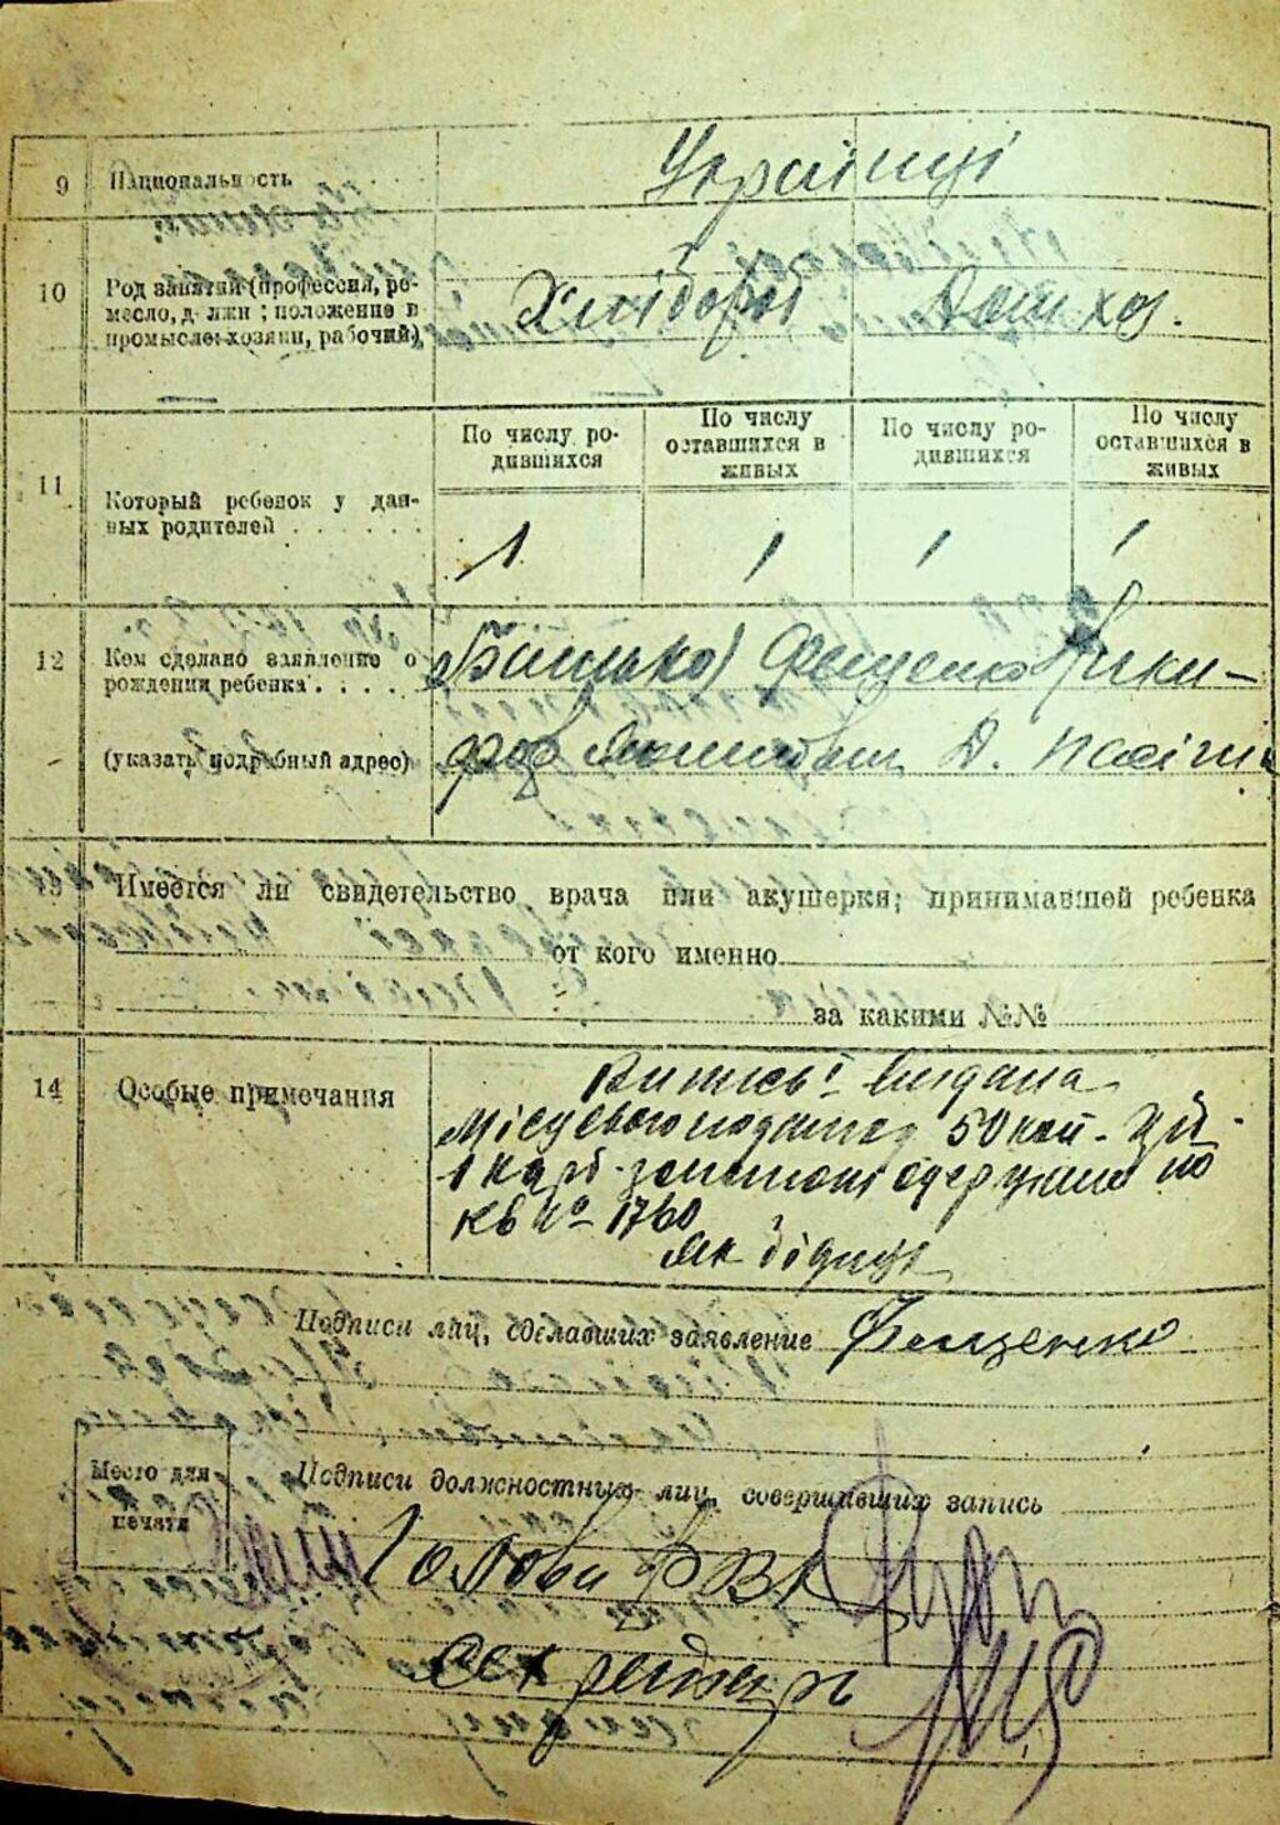 9 Национальность
Українці
10 Род занятий (профессия, ре-
месло, должн; положение в
промысле: хозяин, рабочий)
Хлібороб Дом хоз.
11 Который ребенок у дан-
ных родителей . . . . . .
По числу ро-
дившихся
По числу
оставшихся в
живых
По числу ро-
дившихся
По числу
оставшихся в
живых
1 1 1 1
12 Кем сделано заявление о
рождении ребенка . . . .
(указать подробный адрес)
(Батько) Фещенко Ники-
фор
13 Имеется ли свидетельство врача или акушерки; принимавшей ребенка
от кого именно
за какими №№
14 Особые примечания
Витись видана
Місцевого 50 коп.
1 карб. одержано по
кв № 1760
Подписи лиц, сделавших заявление Фещенко
Место для
печати
Подписи должностных лиц, совершивших запись
Голова РВК
Секретарь